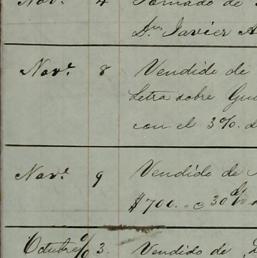 Novr. 4 Tomado de
Dn. Javier A
Novr. 8 Vendido de
Letra sobre Gu
con el 3%. d
Novr. 9 Vendido de
$700. - @ 30%
Octubre 3. Vendido de